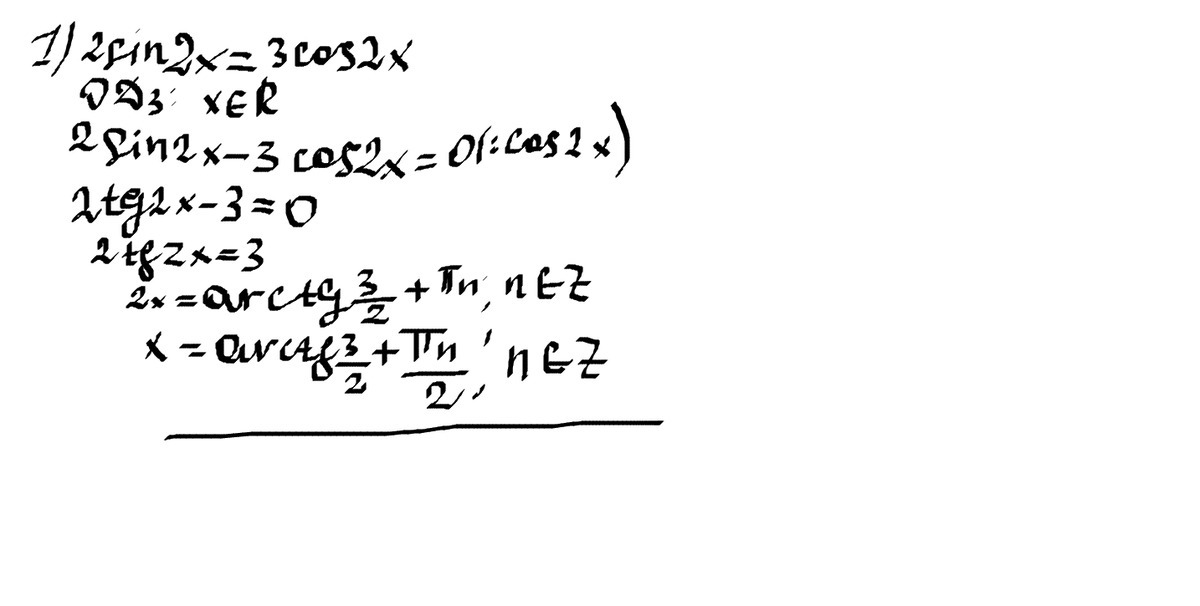 1) 2sin2x = 3cos2x
ОДЗ: x∈R
2sin2x - 3cos2x = 0 (:cos2x)
2tg2x - 3 = 0
2tg2x = 3
2x = arctg 3/2 + πn, n∈Z
x = arctg 3/2 + πn/2, n∈Z